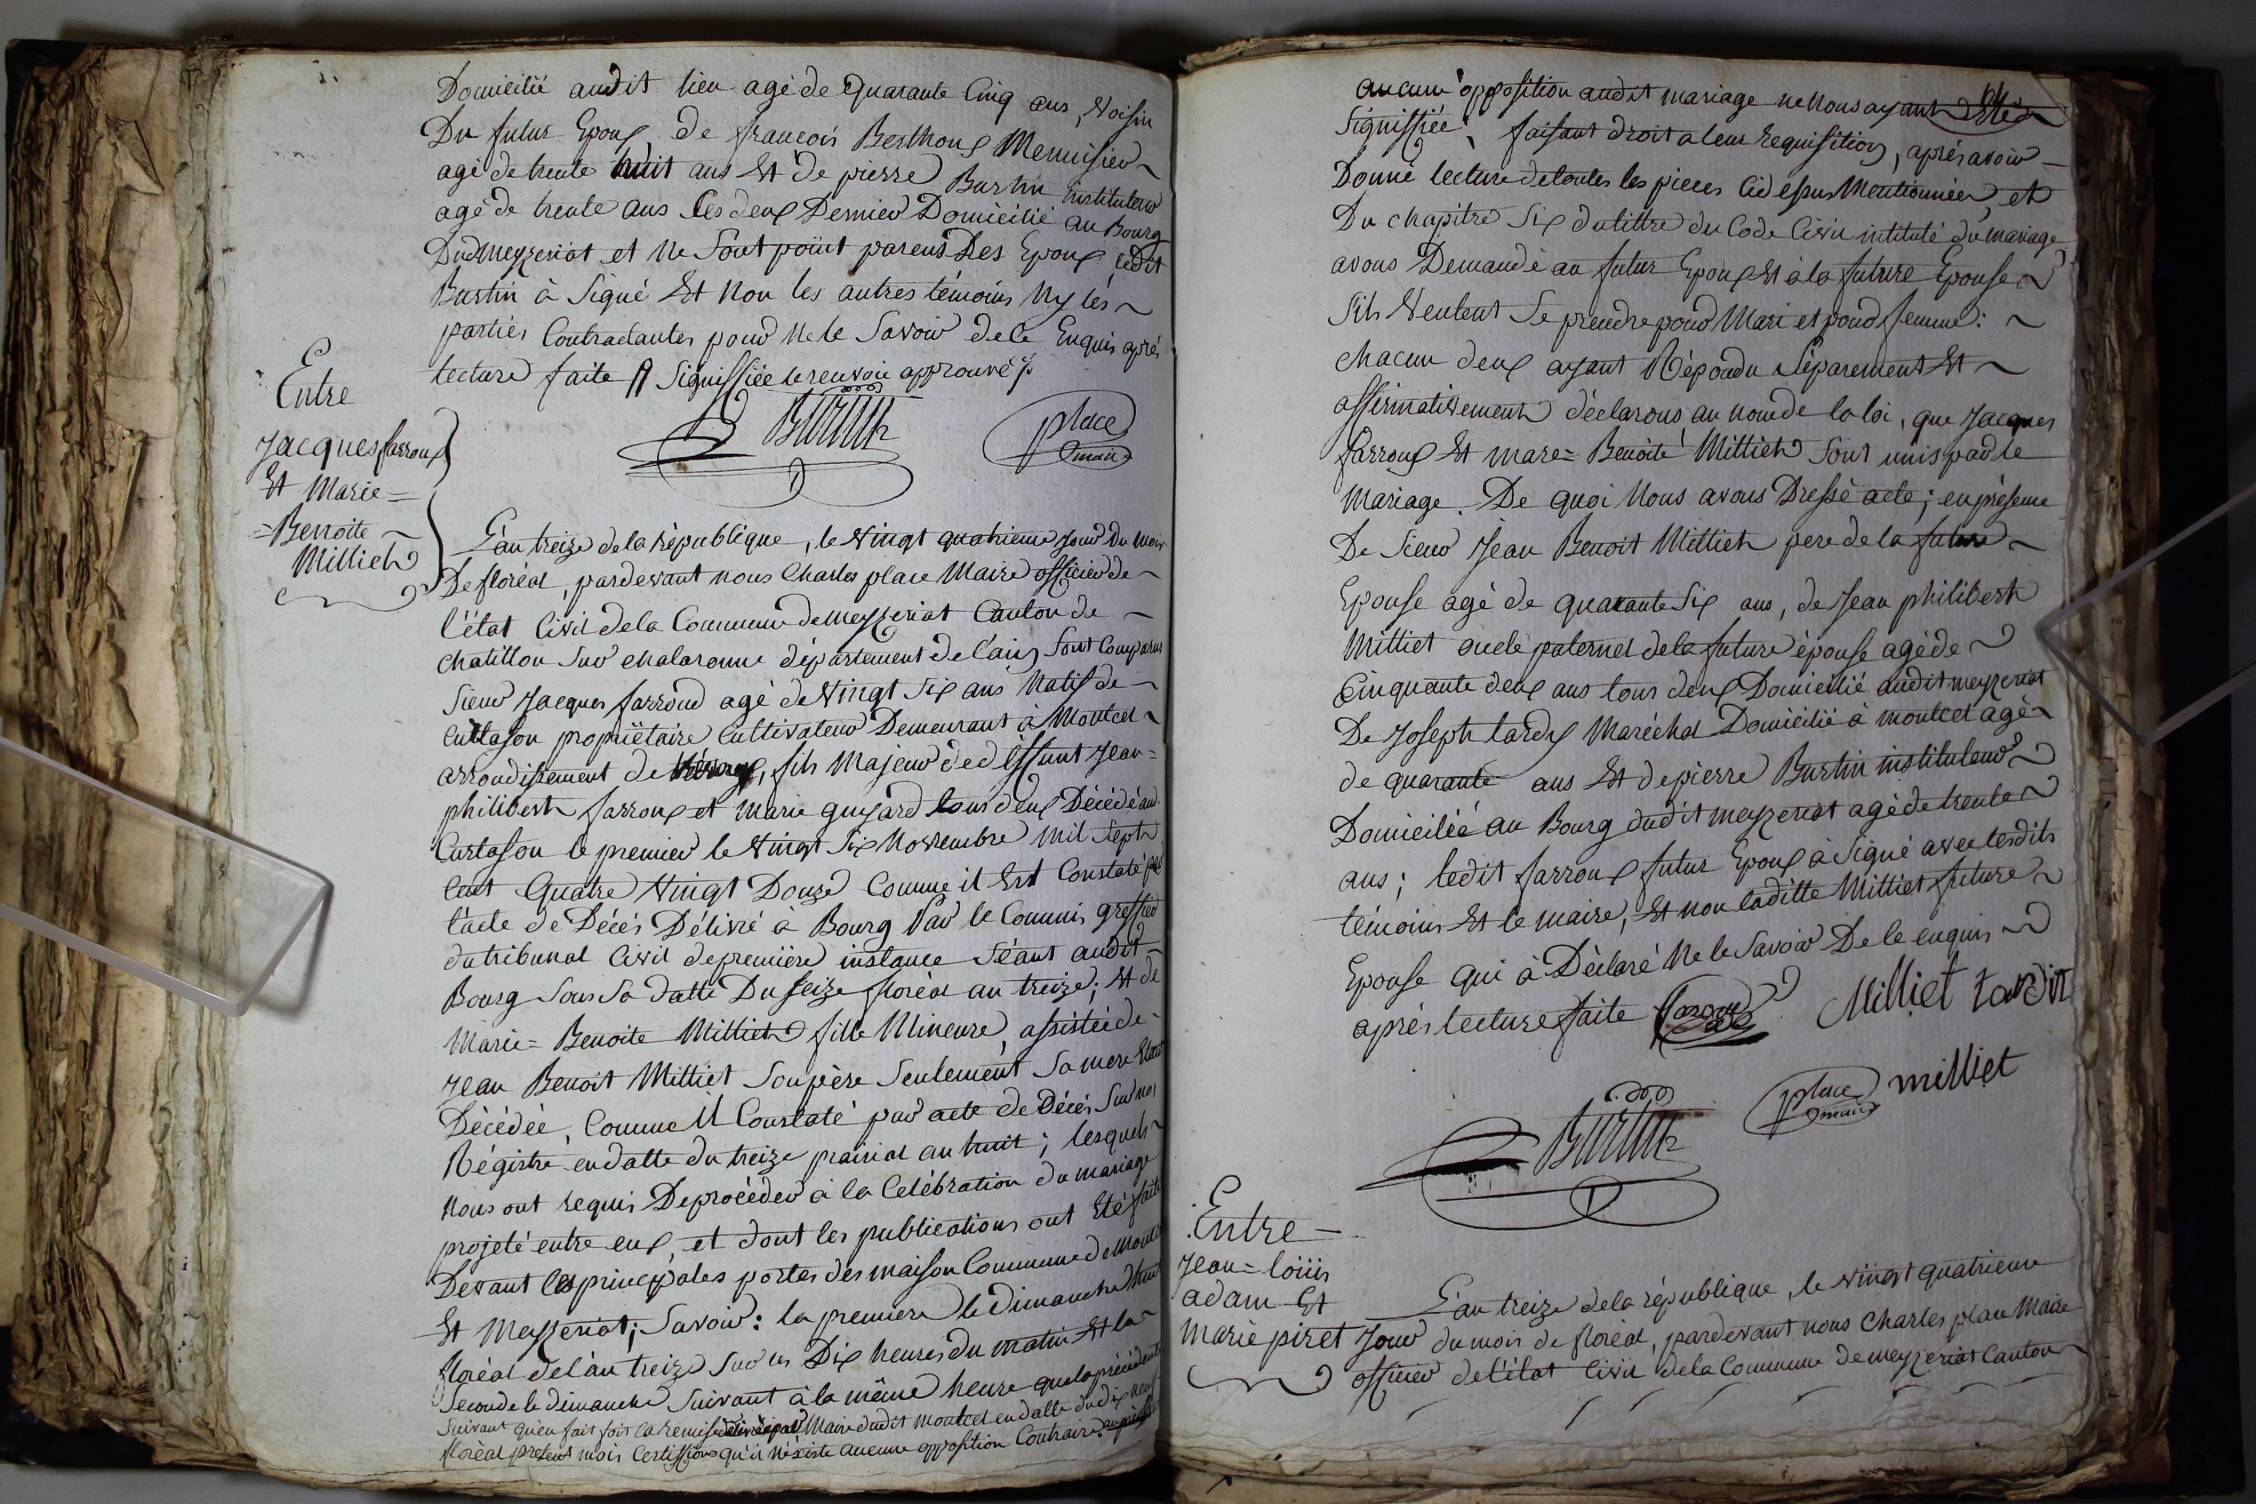 Domicilié audit lieu agé de quarante Cinq ans, Voisin
Du futur Epoux de francois Berthoux Menuisier
agé de trente huit ans Et de pierre Burtin instituteur
agé de trente ans les deux Dernier Domicilié au Bourg
Dud meyzeriat et ne Sont point parens Des Epoux ledit
Burtin à Signé Et Non les autres témoins Ny les
parties Contractantes pour Ne le Savoir de le Enquis aprés
lecture faite Signiffiée le renvoie approuvé
Burtin
place
maire
Entre
Jacques farroux
Et Marie=
=Benoite
Milliet
L'an treize de la république, le Vingt quatrieme jour Du mois
De floréal, pardevant nous Charles place Maire officier de
l'état Civil de la Commune de meyzeriat Canton de
chatillon Sur chalaronne département de l'ain Sont Comparus
Sieur Jacques farroud agé de Vingt Six ans Natif de
Curtason propriétaire Cultivateur Demeurant à Montcel
arrondissement de fils Majeur de deffunt Jean=
philibert farroux et Marie guyard tous deux Décédé aud.
Curtason le premier le Vingt Six Novembre Mil Sept
Cent Quatre Vingt Douze Comme il Est Constaté par
l'acte de Décés Délivré à Bourg Par le Commis greffier
du tribunal Civil de premiere instance Séant audit
Bourg Sous Sa datte Du Seize floréal an treize; Et de
Marie= Benoite Milliet fille Mineure, assistée de
Jean Benoit Milliet Son père Seulement Sa mere Etant
Décédée, Comme Il Constaté par acte de Décés Sur nos
Régistre en datte du treize prairial an huit; lesquels
Nous ont requis De procéder à la Celébration du mariage
projeté entre eux, et dont les publications ont Eté faite
Devant les principales portes des maison Commune de Montcel
Et Meyzeriat; Savoir: la premiere le Dimanche huit
floréal de l'an treize Sur les Dix heures du matin Et la
Seconde le dimanche Suivant à la même heure que la précédente
Suivant qu'en fait foit la remise délivrée par Maire dudit Montcel en datte du dix neuf
floréal present mois Certiffions qu'il N'existe aucune opposition Contraire
64
aucune opposition audit mariage ne Nous ayant Eté
Signiffiée, faisant droit a leur requisition, aprés avoir
Donné lecture de toutes les pieces Cidessus Mentionnées, et
Du chapitre Six du tittre du Code Civil intitulé du mariage
avons Demandé au futur Epoux Et à la future Epouse
S'ils Veulent Se prendre pour Mari et pour femme:
Chacun deux ayant Répondu Séparement Et
affirmativement déclarons au nom de la loi, que Jacques
farroux Et marie= Benoite Milliet Sont unis par le
Mariage. De quoi Nous avons Dressé acte; en présence
De Sieur Jean Benoit Milliet pere de la future
Epouse agé de quarante Six ans, de Jean philibert
Milliet oncle paternel de la future épouse agé de
Cinquante deux ans tous deux Domicilié audit meyzeriat
De Joseph tardy Maréchal Domicilié à montcel agé
de quarante ans Et de pierre Burtin instituteur
Domiciliée au Bourg dudit meyzeriat agé de trente
ans; ledit farroux futur Epoux à Signé avec lesdits
témoins Et le maire, Et non laditte Milliet future
Epouse qui à Déclaré Ne le Savoir De le enquis
aprés lecture faite
Milliet tardit
place
maire
milliet
Burtin
Entre
Jean= loüis
adam Et
Marie piret
L'an treize de la république, le Vingt quatrieme
Jour du mois de floréal, pardevant nous Charles place Maire
officier de l'état Civil de la Commune de meyzeriat Canton